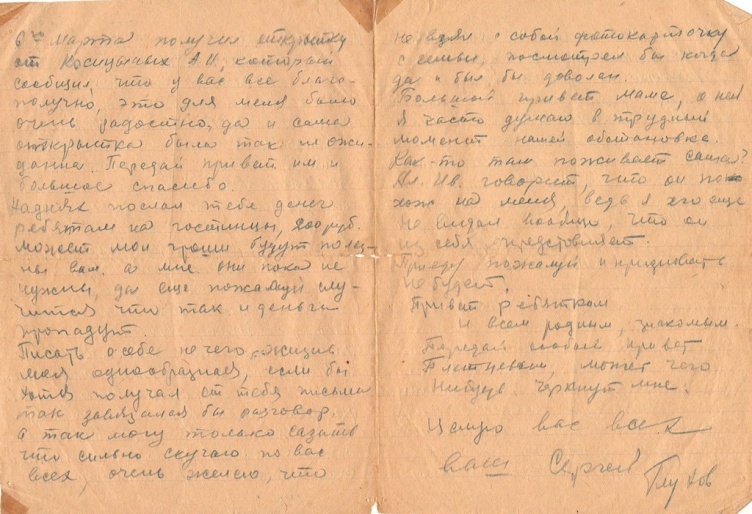 6го марта получил открытку
от Косицыных А И, который
сообщил, что у вас все благо-
получно, это для меня было
очень радостно, да и сама
открытка была так неожи-
данна. Передай привет им и
большое спасибо.
Надняхпослал тебе деньги
ребятам на гостинцы, 200 руб.
может мои гроши будут полез-
ны вам. а мне они пока не
нужны, да еще пожалуй слу-
чится что так и деньги
пропадут.
Писать о себе нечего, жизнь
моя однообразная, если бы
хотя получал от тебя письма
так завязался бы разговор.
А так могу только сказать
что сильно скучаю по вас
всех, очень жалею, что
не взял с собой фотокарточку
с семьи, посмотрел бы когда
да и был бы доволен.
Большой привет маме, о ней
я часто думаю в трудный
момент нашей обстановке.
Как-то там поживает сашка?
Ал. Ив. говорит, что он по
хож на меня, ведь я его еще
не видал вообще, что он
из себя представляет.
Приеду пожалуй и признавать
не будет.
Привет ребяткам
и всем родным, знакомым.
Передай особый привет
может чего
нибудь черкнут мне.
Целую вас всех
ваш Сергей
Глухов